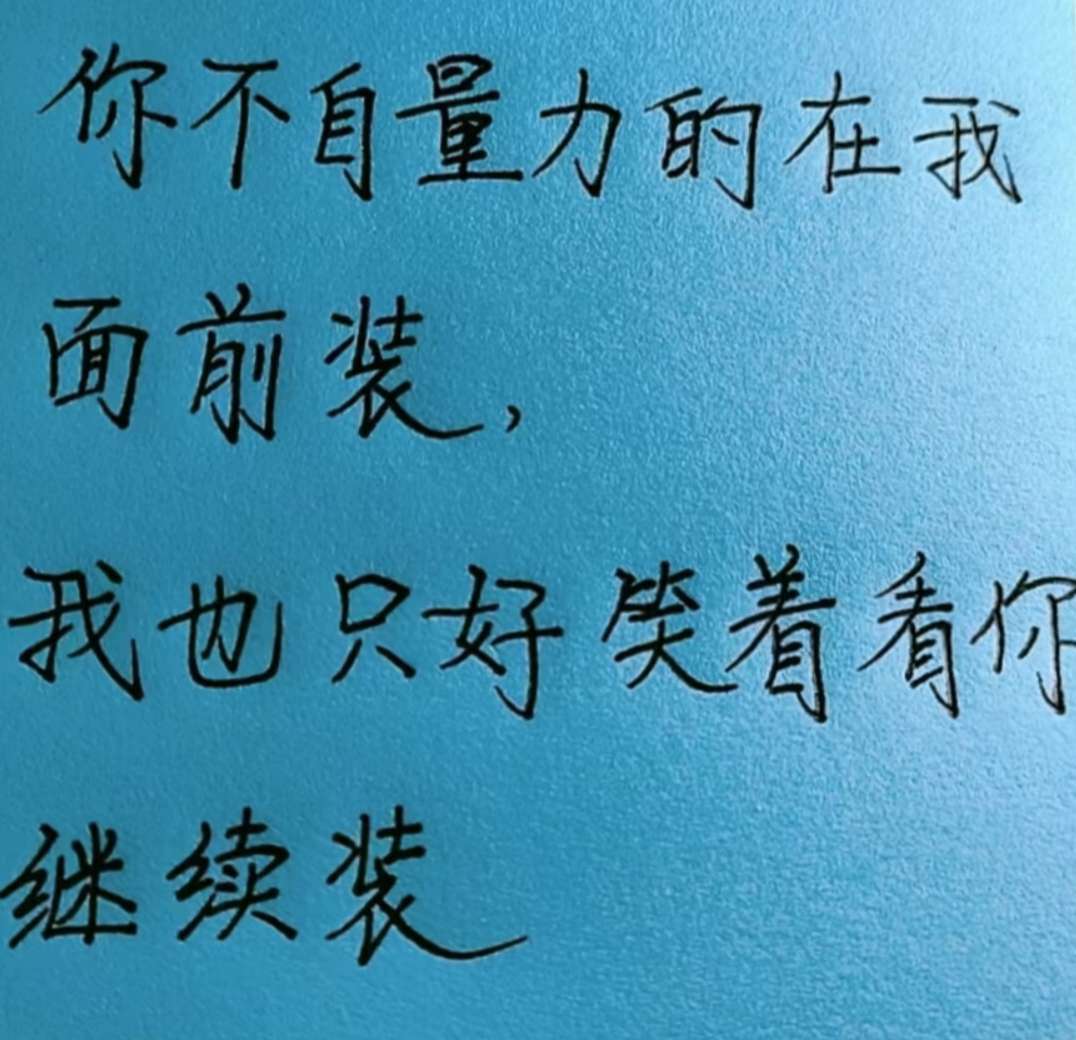 你不自量力的在我
面前装，
我也只好笑着看你
继续装